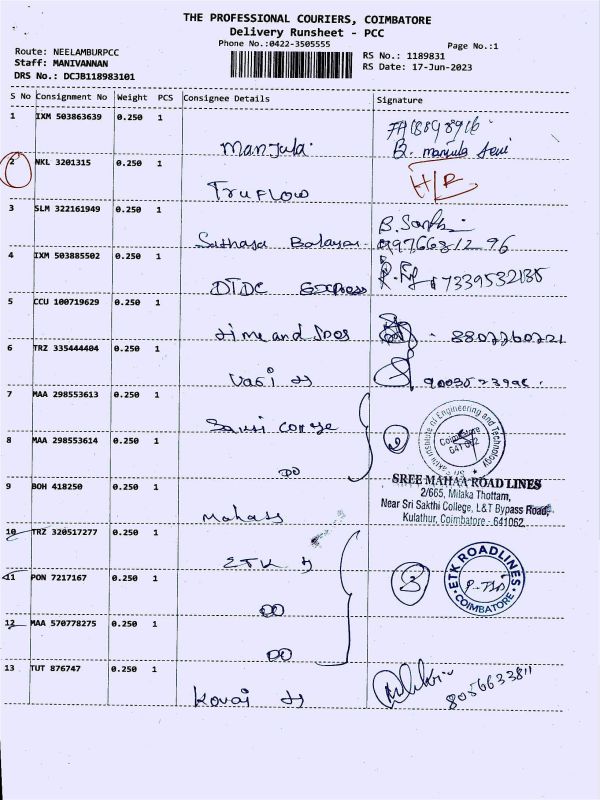 THE PROFESSIONAL COURIERS, COIMBATORE
Delivery Runsheet - PCC
Phone No.:0422-3505555
Page No.:1
Route: NEELAMBURPCC
RS No.: 1189831
Staff: MANIVANNAN
RS Date: 17-Jun-2023
DRS No.: DCJB118983101
S No Consignment No Weight PCS Consignee Details Signature
1 IXM 503863639 0.250 1
Manjula.
2 NKL 3201315 0.250 1
TruFlow
H/R
3 SLM 322161949 0.250 1
4 IXM 503885502 0.250 1
DTDC Express
5 CCU 100719629 0.250 1
8807760221
6 TRZ 335444404 0.250 1
7 MAA 298553613 0.250 1
8 MAA 298553614 0.250 1
DO
Institute of Engineering and Technology
Coimbatore
SREE MAHAA ROAD LINES
2/665, Milaka Thottam,
Near Sri Sakthi College, L&T Bypass Road,
Kulathur, Coimbatore - 641062.
9 BOH 418250 0.250 1
10 TRZ 320517277 0.250 1
ETK
11 PON 7217167 0.250 1
DO
ETK ROADLINES
COIMBATORE
12 MAA 570778275 0.250 1
DO
13 TUT 876747 0.250 1
Kovai
8056633811